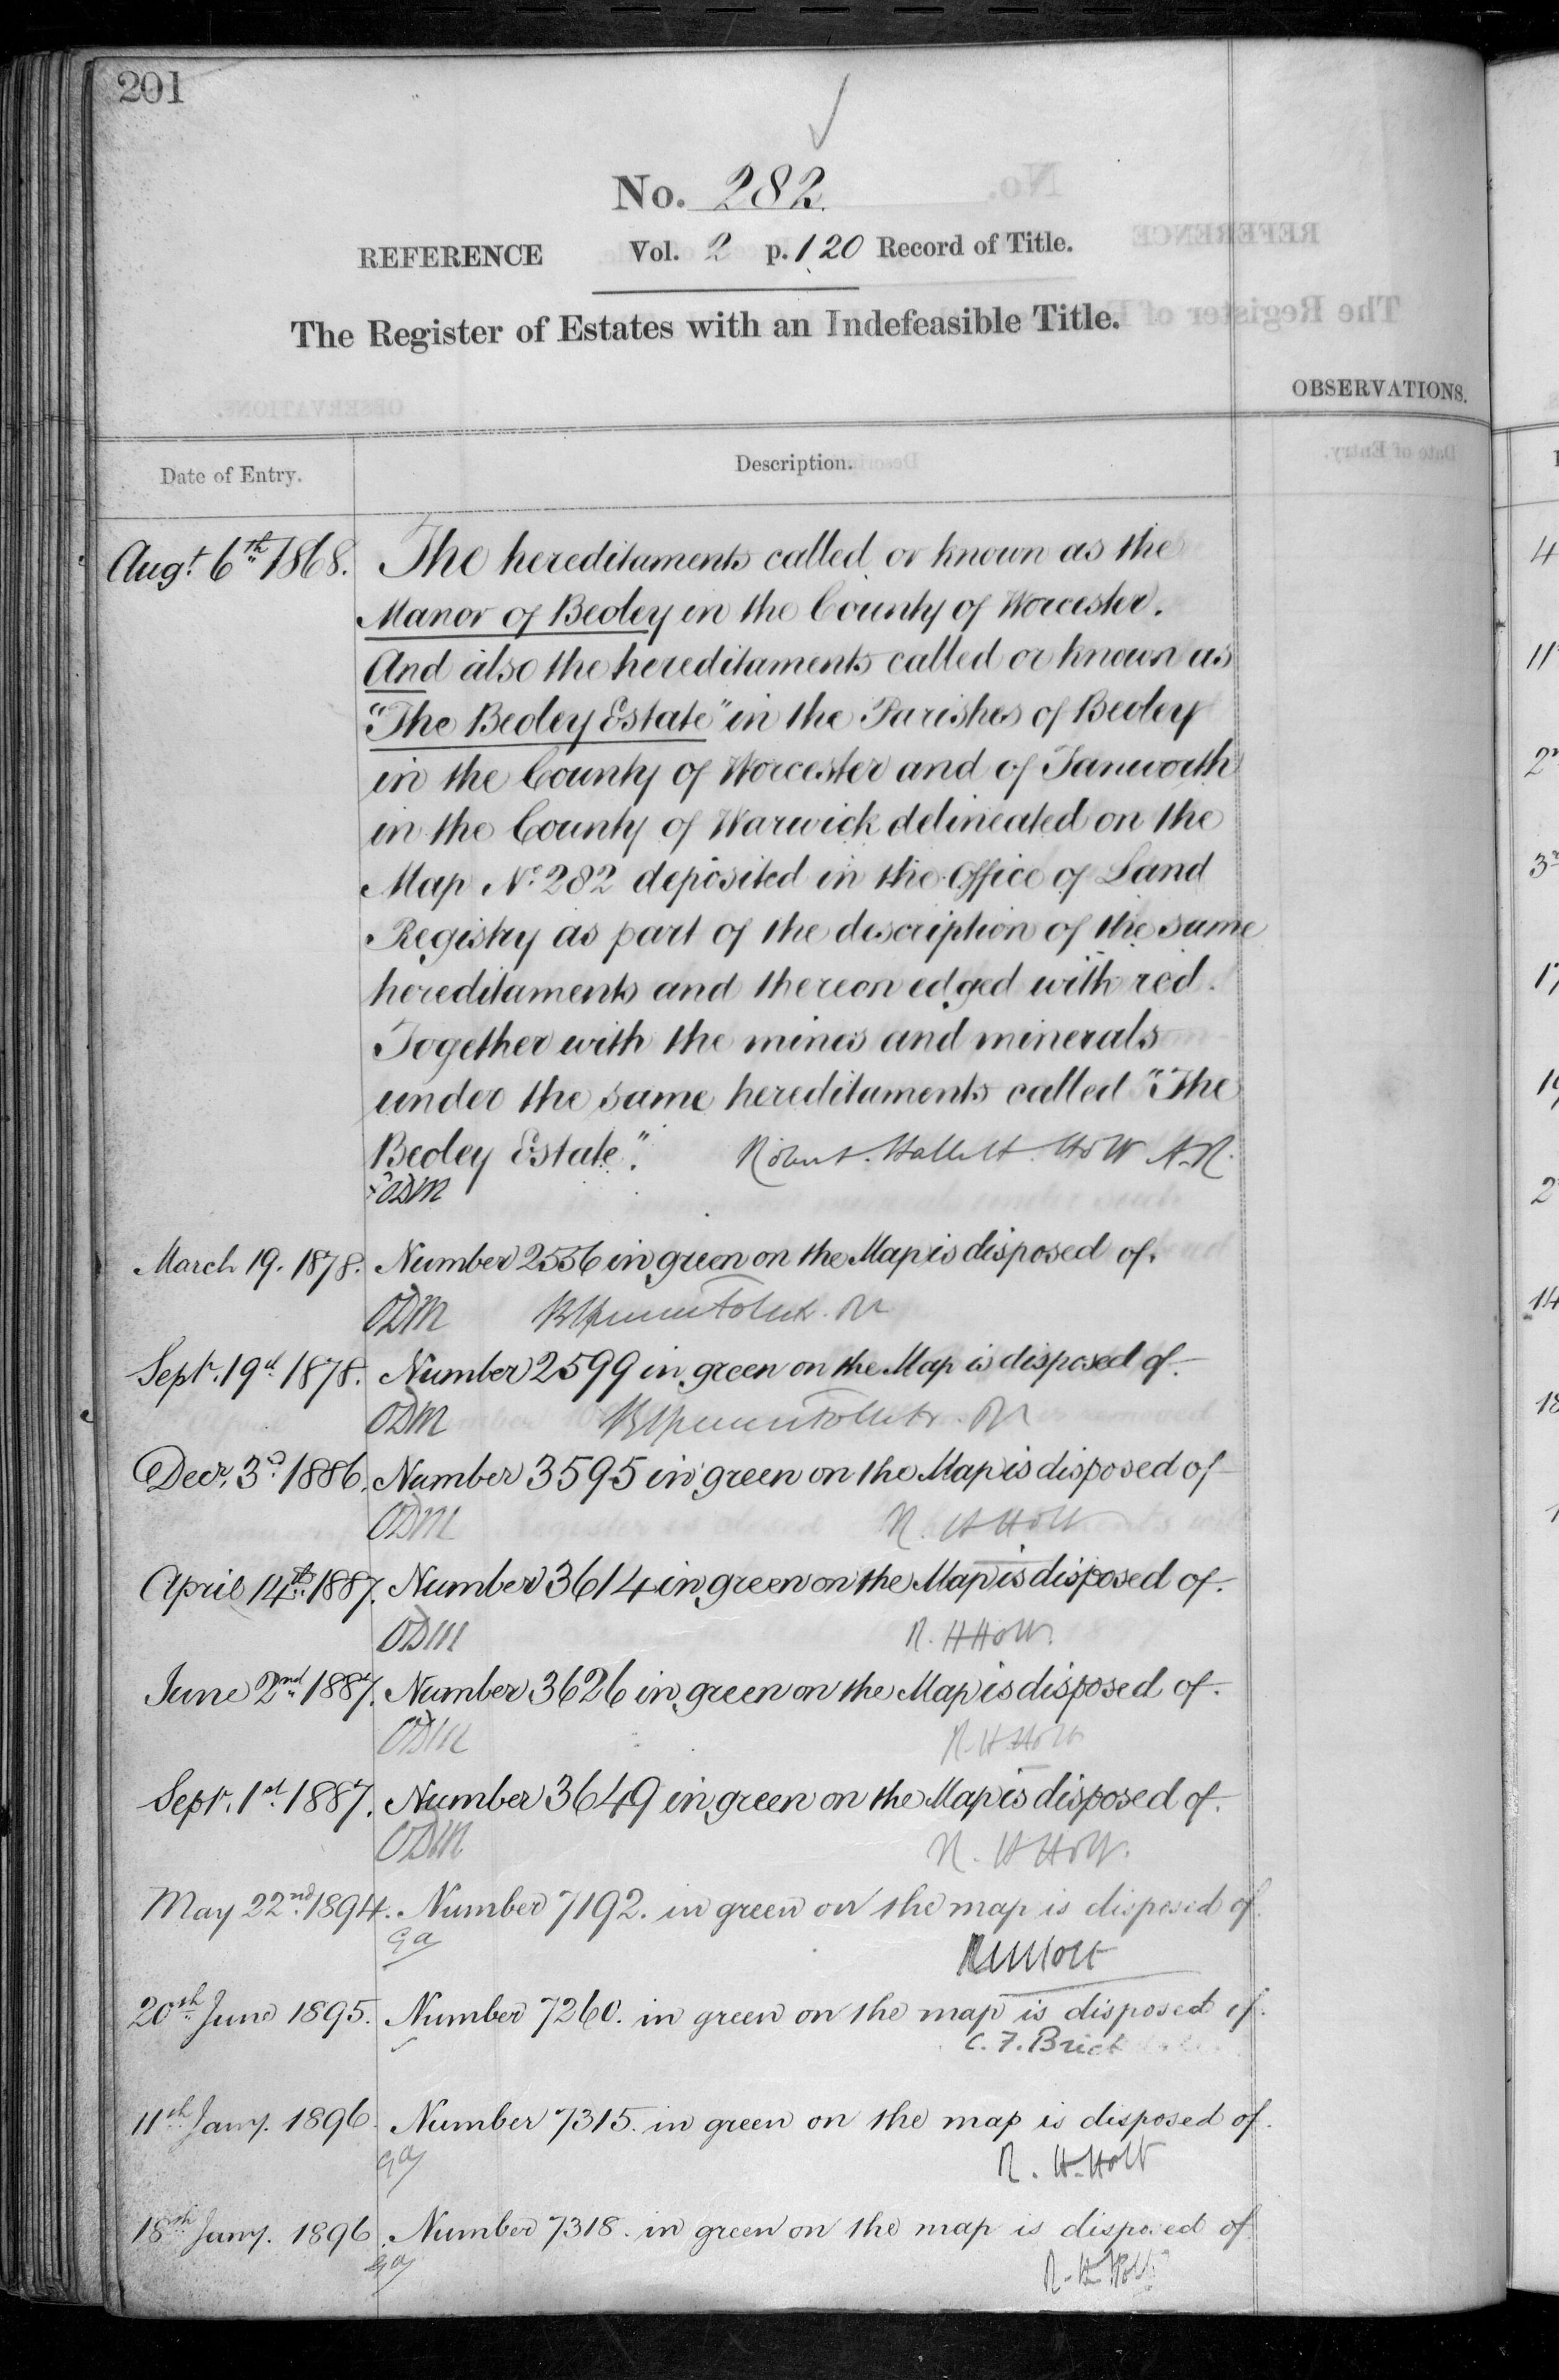 201
No. 282
REFERENCE Vol. 2 p. 120 Record of Title.
The Register of Estates with an Indefeasible Title.
OBSERVATIONS.
Date of Entry. Description.
Augt. 6th 1868. The hereditaments called or known as the
Manor of Beoley in the County of Worcester.
And also the hereditaments called or known as
"The Beoley Estate" in the Parishes of Beoley
in the County of Worcester and of Tanworth
in the County of Warwick delineated on the
Map No. 282 deposited in the Office of Land
Registry as part of the description of the same
hereditaments and thereon edged with red.
Together with the mines and minerals
under the same hereditaments called "The
Beoley Estate". Robert Hallett Holt A.R.
ODM
March 19. 1878. Number 2556 in green on the Map is disposed of.
ODM
Sept. 19th 1878. Number 2599 in green on the Map is disposed of.
ODM
Decr. 3d. 1886. Number 3595 in green on the Map is disposed of
ODM R. H Holt
April 14th 1887. Number 3614 in green on the Map is disposed of.
ODM R. H Holt
June 2nd. 1887. Number 3626 in green on the Map is disposed of.
ODM R. H Holt
Sept. 1st. 1887. Number 3649 in green on the Map is disposed of.
ODM R. H Holt.
May 22nd. 1894. Number 7192. in green on the map is disposed of.
ga RHHolt
20th June 1895. Number 7260. in green on the map is disposed of.
C. F. Brick
11th Jany. 1896. Number 7315. in green on the map is disposed of.
ga R. H. Holt
18th Jany. 1896. Number 7318. in green on the map is disposed of
ga R. H. Holt